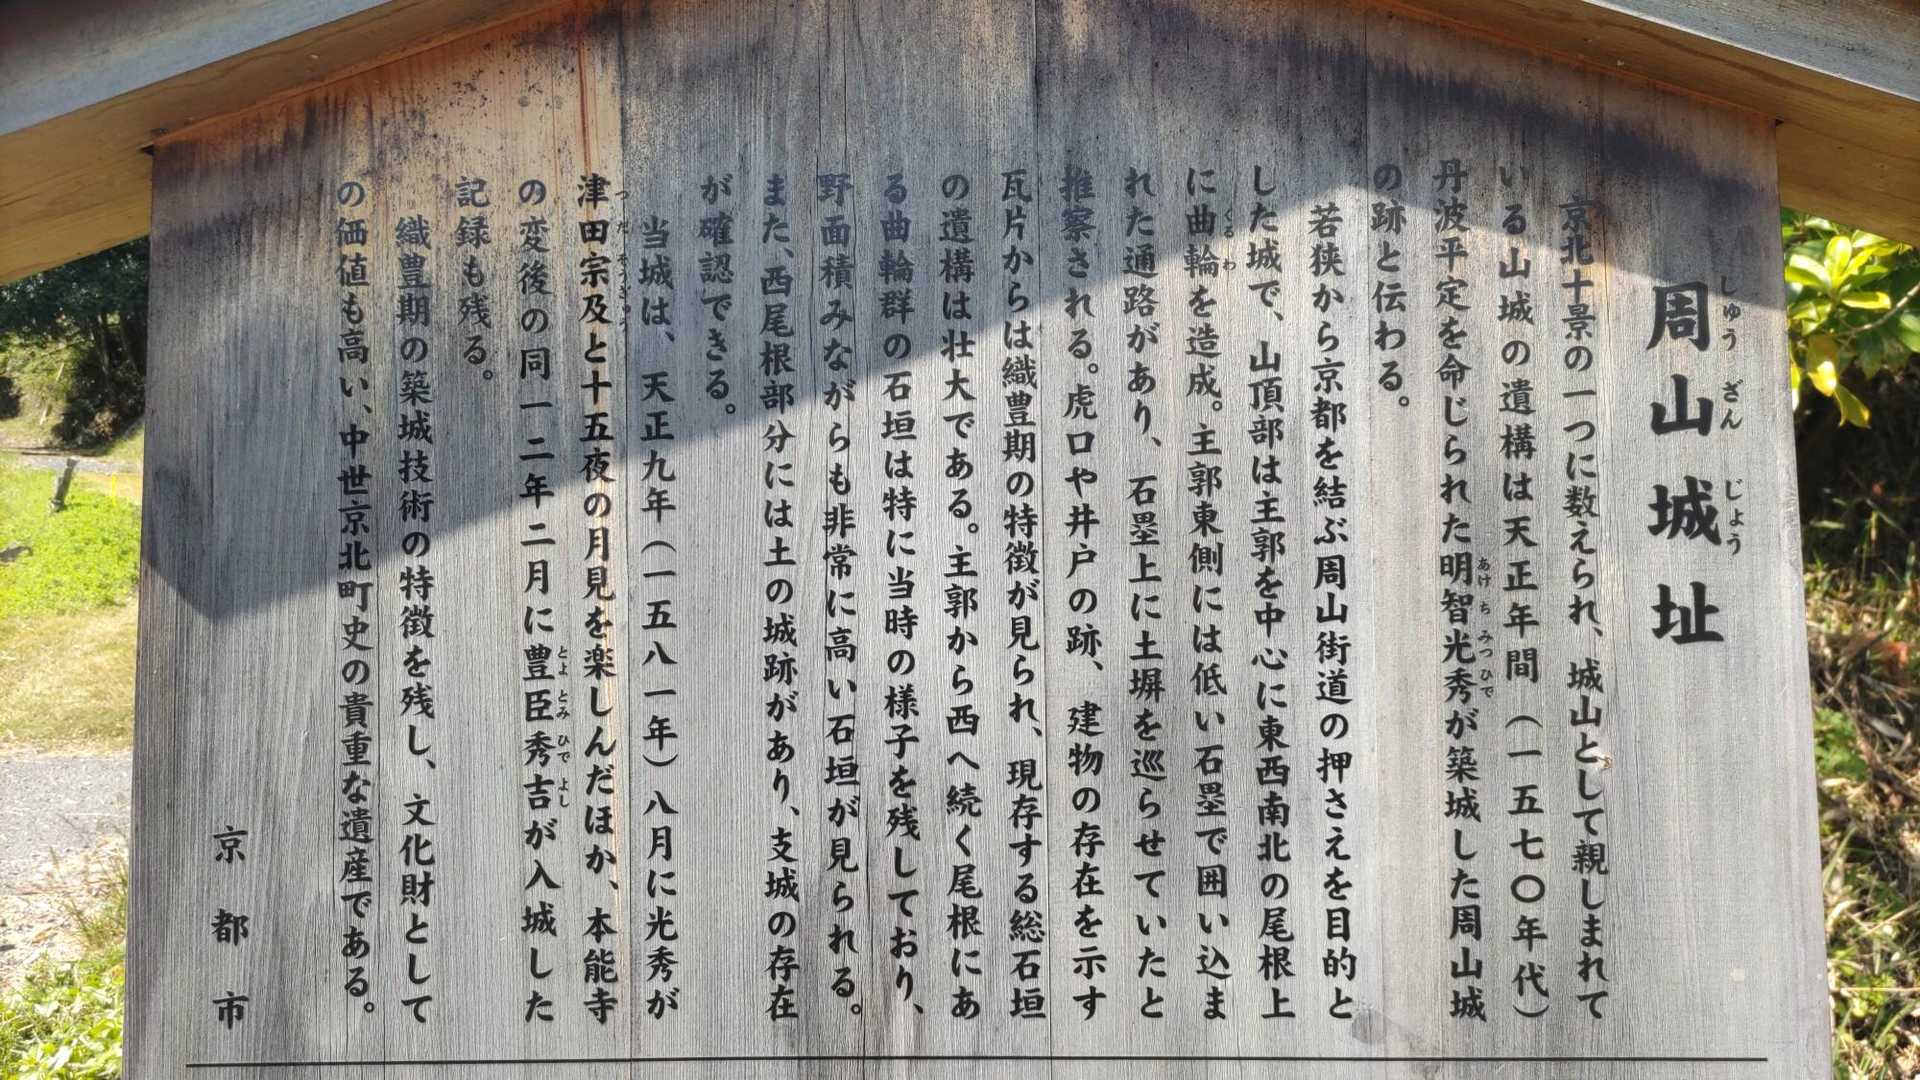 周山城址
しゅうざんじょう
京北十景の一つに数えられ、城山として親しまれて
いる山城の遺構は天正年間(一五七〇年代)
丹波平定を命じられた明智光秀が築城した周山城
あけちみつひで
の跡と伝わる。
若狭から京都を結ぶ周山街道の押さえを目的と
した城で、山頂部は主郭を中心に東西南北の尾根上
に曲輪を造成。主郭東側には低い石塁で囲い込ま
くるわ
れた通路があり、石塁上に土塀を巡らせていたと
推察される。虎口や井戸の跡、建物の存在を示す
瓦片からは織豊期の特徴が見られ、現存する総石垣
の遺構は壮大である。主郭から西へ続く尾根にあ
る曲輪群の石垣は特に当時の様子を残しており、
野面積みながらも非常に高い石垣が見られる。
また、西尾根部分には土の城跡があり、支城の存在
が確認できる。
当城は、天正九年(一五八一年)八月に光秀が
津田宗及と十五夜の月見を楽しんだほか、本能寺
つだそうぎゅう
の変後の同一二年二月に豊臣秀吉が入城した
とよとみひでよし
記録も残る。
織豊期の築城技術の特徴を残し、文化財として
の価値も高い、中世京北町史の貴重な遺産である。
京都市